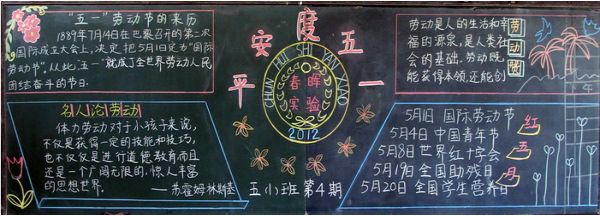 "五一"劳动节的来历
1889年7月4日在巴黎召开的第二次
国际成立大会上,决定把5月1日定为"国际
劳动节",从此,"五一"就成了全世界劳动人民
团结奋斗的节日.
名人论劳动
体力劳动对于小孩子来说,
不仅是获得一定的技能和技巧,
也不仅仅是进行道德教育,而且
还是一个广阔无限的,惊人丰富
的思想世界.
——苏霍姆林斯基
平安度五一
CHUN HUI SHI YAN XIAO
春晖
实验
2012
五小班第4期
劳动是人的生活和幸
福的源泉,是人类社
会的基础.劳动既
能获得本领,还能创
劳动
5月1日 国际劳动节
5月4日 中国青年节
5月8日 世界红十字会
5月19日 全国助残日
5月20日 全国学生营养日
红
五
月